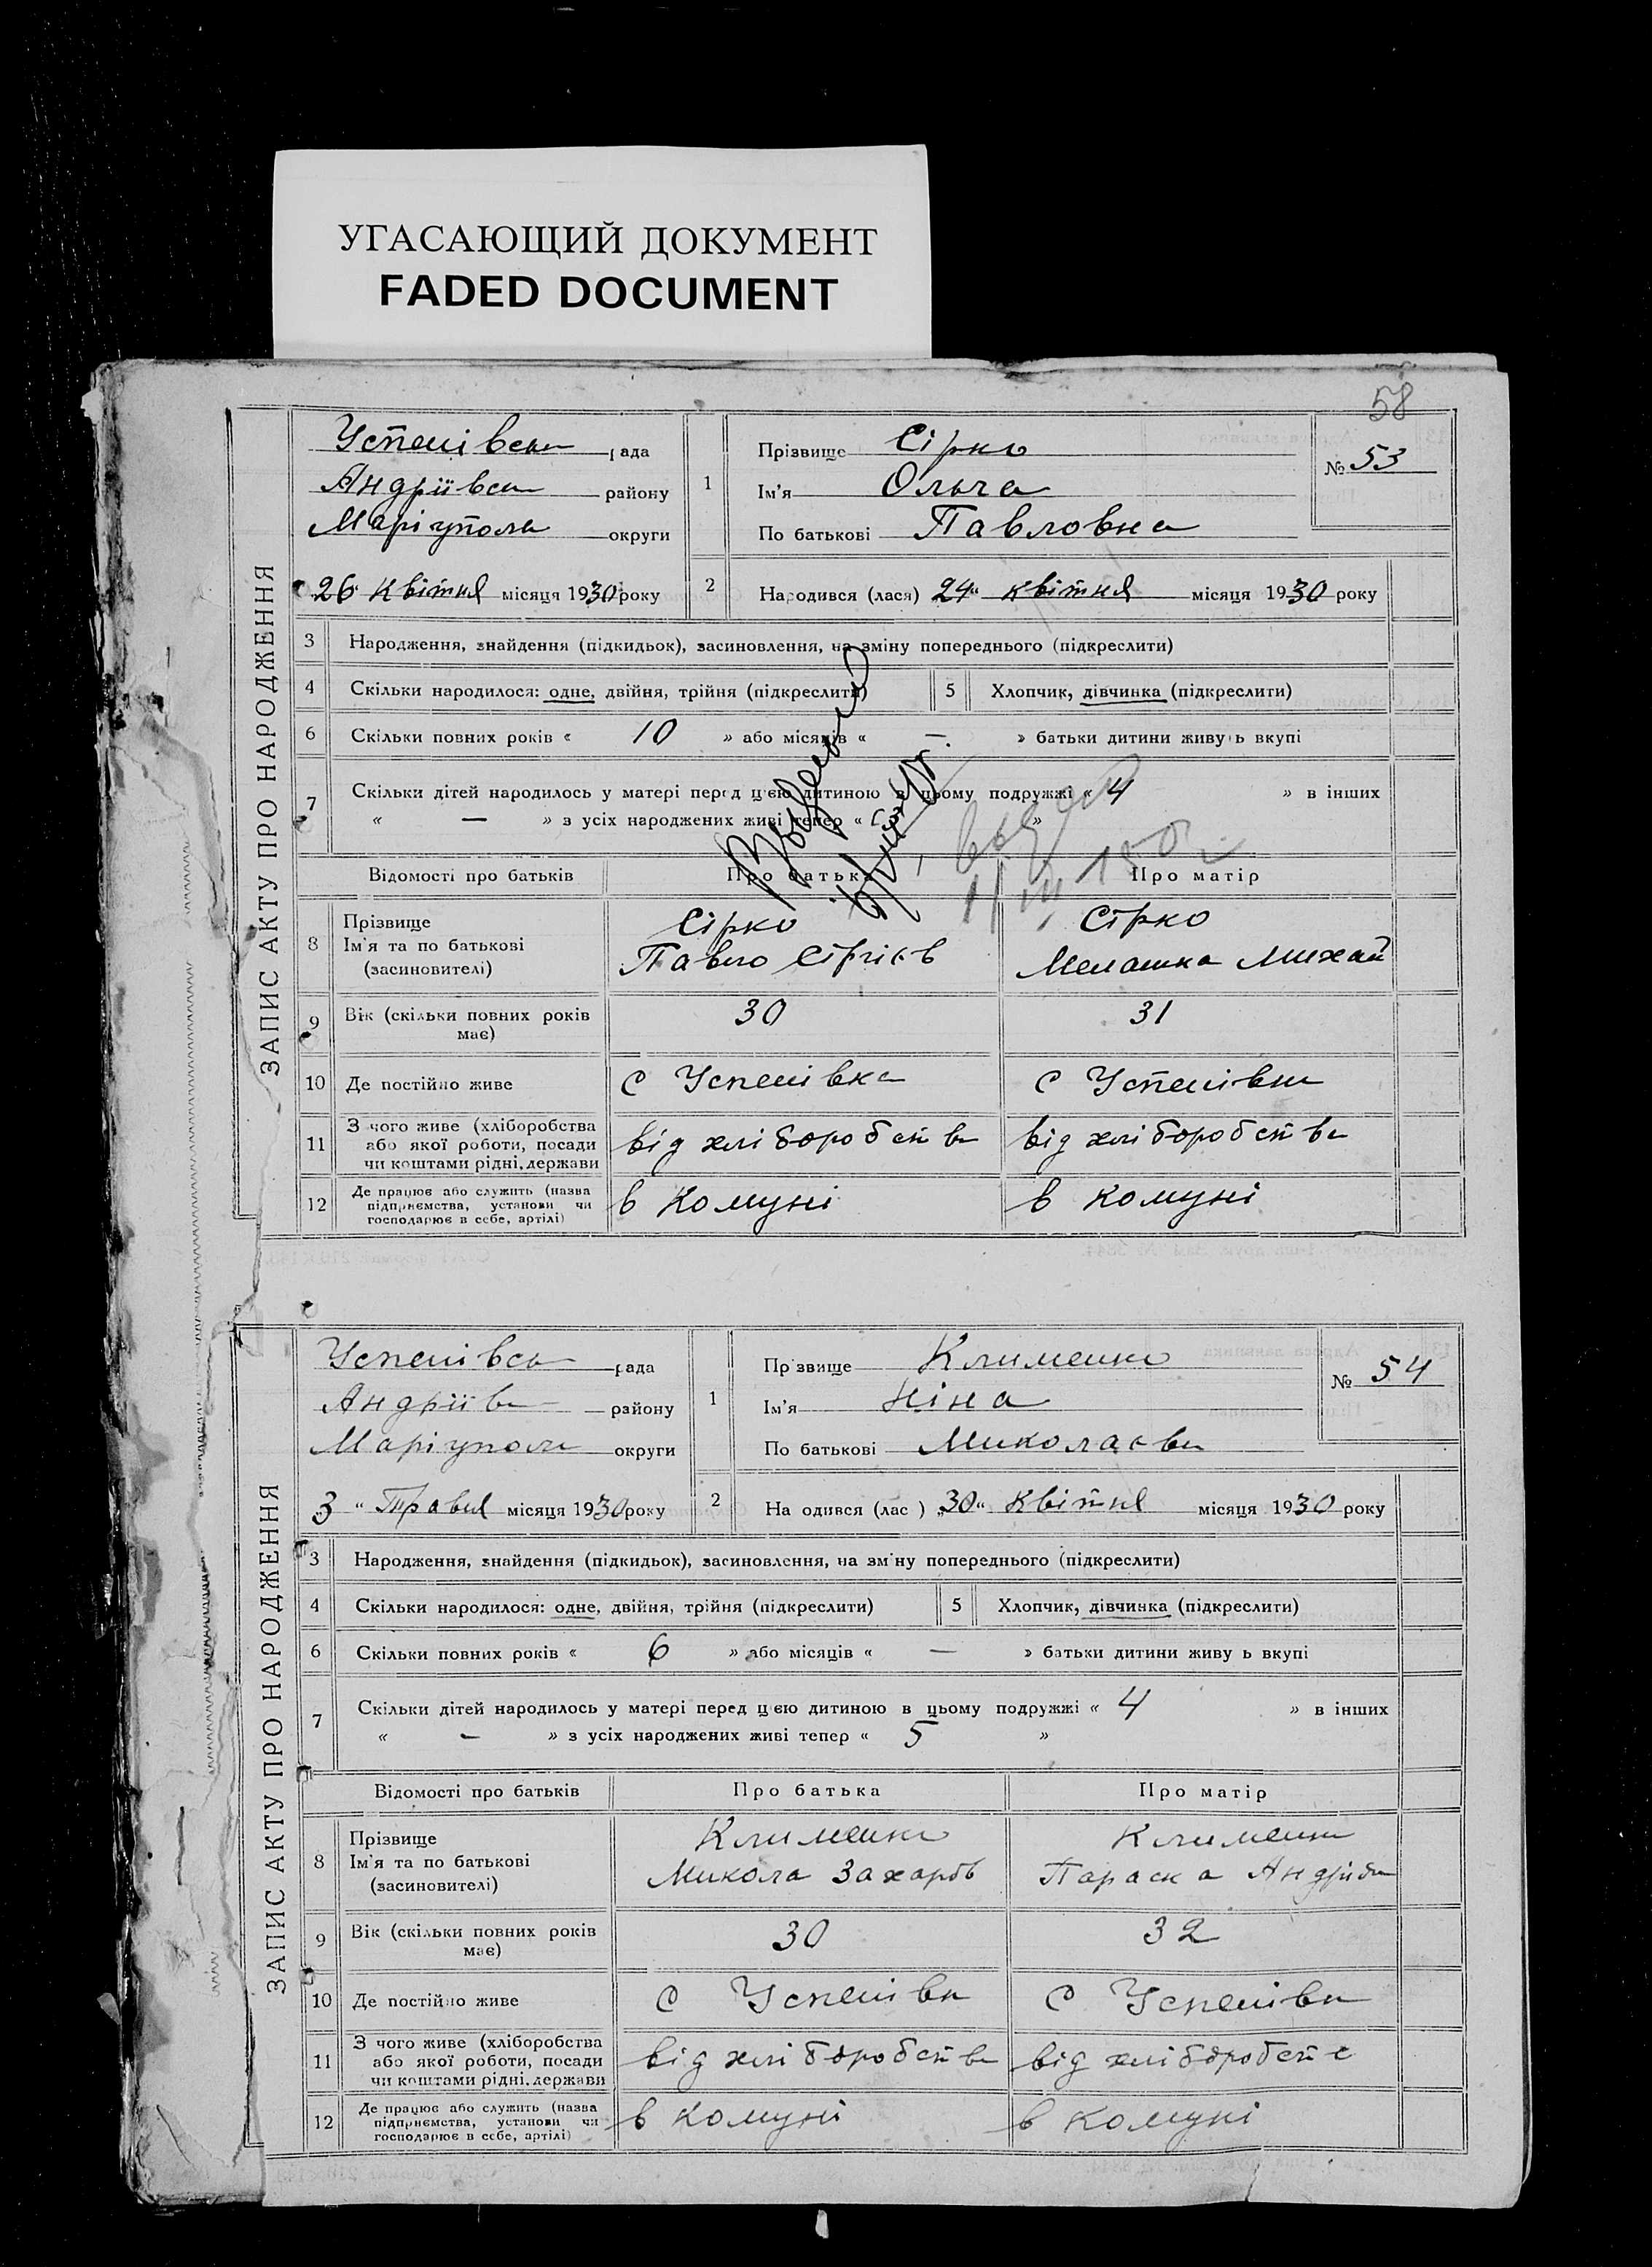 УГАСАЮЩИЙ ДОКУМЕНТ
FADED DOCUMENT
58
ЗАПИС АКТУ ПРО НАРОДЖЕННЯ
Успенівськ рада
Андріївськ району
Маріупольськ округи
26 квітня місяця 1930 року
1 Прізвище Сірко
Ім'я Ольга
По батькові Павловна
№ 53
2 Народився (лася) 24 „ квітня місяця 1930 року
3 Народження, знайдення (підкидьок), засиновлення, на зміну попереднього (підкреслити)
4 Скільки народилося: одне, двійня, трійня (підкреслити) 5 Хлопчик, дівчинка (підкреслити)
6 Скільки повних років « 10 » або місяців « — » батьки дитини живуть вкупі
7 Скільки дітей народилось у матері перед цією дитиною в цьому подружжі « 4 » в інших
« — » з усіх народжених живі тепер « »
Відомості про батьків Про батька Про матір
8 Прізвище Сірко Сірко
Ім'я та по батькові Павло Мелашка Михай
(засиновителі)
9 Вік (скільки повних років 30 31
має)
10 Де постійно живе с Успенівка с Успенівка
11 З чого живе (хліборобства
або якої роботи, посади від хліборобства від хліборобства
чи коштами рідні, держави
12 Де працює або служить (назва
підприємства, установи чи в комуні в комуні
господарює в себе, артілі)
ЗАПИС АКТУ ПРО НАРОДЖЕННЯ
Успенівськ рада
Андріївськ району
Маріупольськ округи
3 „ Травня місяця 1930 року
1 Прізвище Клименко
Ім'я Ніна
По батькові Миколаєвна
№ 54
2 Народився (лася) „30 „ квітня місяця 1930 року
3 Народження, знайдення (підкидьок), засиновлення, на зміну попереднього (підкреслити)
4 Скільки народилося: одне, двійня, трійня (підкреслити) 5 Хлопчик, дівчинка (підкреслити)
6 Скільки повних років « 6 » або місяців « — » батьки дитини живуть вкупі
7 Скільки дітей народилось у матері перед цією дитиною в цьому подружжі « 4 » в інших
« — » з усіх народжених живі тепер « 5 »
Відомості про батьків Про батька Про матір
8 Прізвище Клименко Клименко
Ім'я та по батькові Микола Захаров Параска
(засиновителі)
9 Вік (скільки повних років 30 32
має)
10 Де постійно живе с Успенівка с Успенівка
11 З чого живе (хліборобства
або якої роботи, посади від хліборобства від хліборобст
чи коштами рідні, держави
12 Де працює або служить (назва
підприємства, установи чи в комуні в комуні
господарює в себе, артілі)